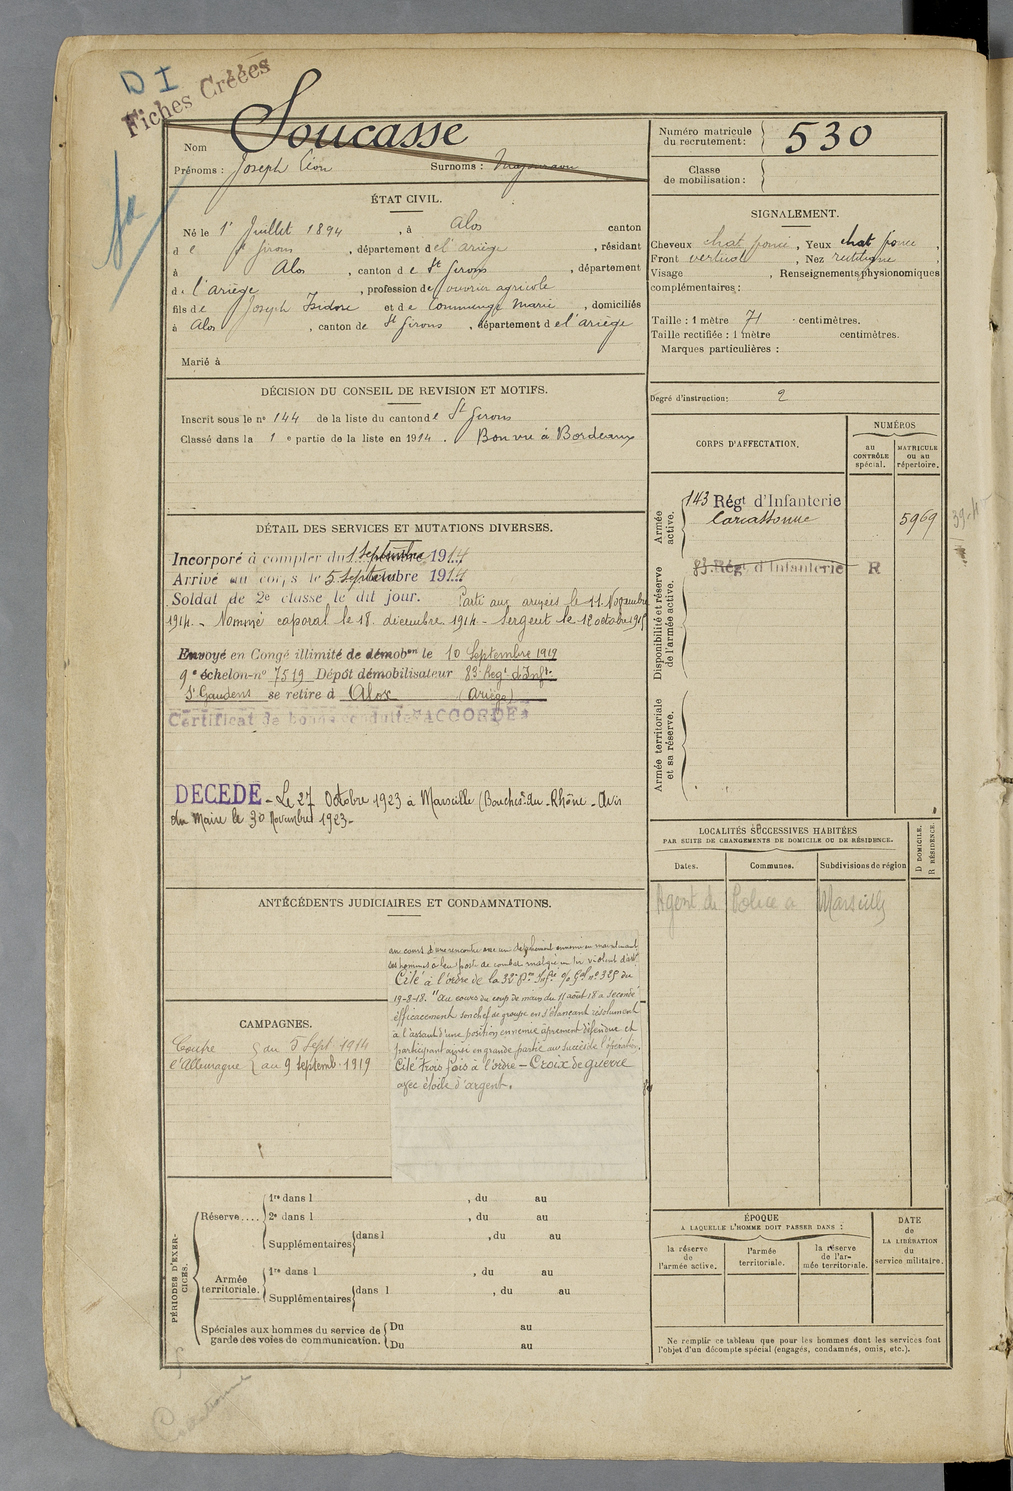 D I
Fiches Créées
Nom Soucasse
Prénoms : Joseph Léon Surnoms :
Numéro matricule du recrutement : 530
Classe de mobilisation :
ÉTAT CIVIL.
Né le 1er Juillet 1894, à Alos canton
de St Girons, département de l'ariège, résidant
à Alos, canton de St Girons, département
de l'ariège, profession de ouvrier agricole
fils de Joseph Isidore et de Commenge Marie, domiciliés
à Alos, canton de St Girons, département de l'ariège
Marié à
SIGNALEMENT.
Cheveux chat foncé, Yeux chat foncé,
Front vertical, Nez rectiligne,
Visage , Renseignements physionomiques
complémentaires :
Taille : 1 mètre 71 centimètres.
Taille rectifiée : 1 mètre centimètres.
Marques particulières :
Degré d'instruction : 2
DÉCISION DU CONSEIL DE REVISION ET MOTIFS.
Inscrit sous le no 144 de la liste du canton de St Girons
Classé dans la 1e partie de la liste en 1914. Bon vu à Bordeaux
CORPS D'AFFECTATION.
NUMÉROS
au CONTRÔLE spécial.
MATRICULE ou au répertoire.
Armée active.
143 Régt d'Infanterie
Carcassonne 5969
Disponibilité et réserve de l'armée active.
83 Régt d'Infanterie R
Armée territoriale et sa réserve.
DÉTAIL DES SERVICES ET MUTATIONS DIVERSES.
Incorporé à compter du 1 Septembre 1914
Arrivé au corps le 5 Septembre 1914
Soldat de 2e classe le dit jour. Parti aux armées le 11 Novembre
1914. - Nommé caporal le 18 décembre 1914 - Sergent le 12 octobre 1915
Envoyé en Congé illimité de démobon le 10 Septembre 1919
9e échelon - no 7519 Dépôt démobilisateur 83e Regt d'Inft
St Gaudens se retire à Alos (Ariège)
Certificat de bonne conduite "ACCORDÉ"
DECEDE - Le 27 Octobre 1923 à Marseille (Bouches-du-Rhône - Avis
du Maire le 30 Novembre 1923 -
LOCALITÉS SUCCESSIVES HABITÉES
PAR SUITE DE CHANGEMENTS DE DOMICILE OU DE RÉSIDENCE.
Dates. Communes. Subdivisions de région
D DOMICILE.
R RÉSIDENCE.
Agent de Police à Marseille
ANTÉCÉDENTS JUDICIAIRES ET CONDAMNATIONS.
au cours d'une rencontre avec un détachement ennemi en maintenant
ses hommes à leur poste de combat malgré un violent
Cité à l'ordre de la 32e Don Infie o/o Gal no 325 du
19-8-18. "Au cours du coup de main du 11 août 18 a secondé
efficacement son chef de groupe en s'élançant résolument
à l'assaut d'une position ennemie âprement défendue et
participant ainsi en grande partie au succès de l'opération.
Cité trois fois à l'ordre - Croix de guerre
avec étoile d'argent.
CAMPAGNES.
Contre l'Allemagne { du 5 Sept. 1914
au 9 Septemb. 1919
PÉRIODES D'EXERCICES.
Réserve....
1re dans l , du au
2e dans l , du au
Supplémentaires dans l , du au
Armée territoriale.
1re dans l , du au
Supplémentaires dans l , du au
Spéciales aux hommes du service de garde des voies de communication.
Du au
Du au
ÉPOQUE
A LAQUELLE L'HOMME DOIT PASSER DANS :
la réserve de l'armée active.
l'armée territoriale.
la réserve de l'armée territoriale.
DATE de LA LIBÉRATION du service militaire.
Ne remplir ce tableau que pour les hommes dont les services font
l'objet d'un décompte spécial (engagés, condamnés, omis, etc.).